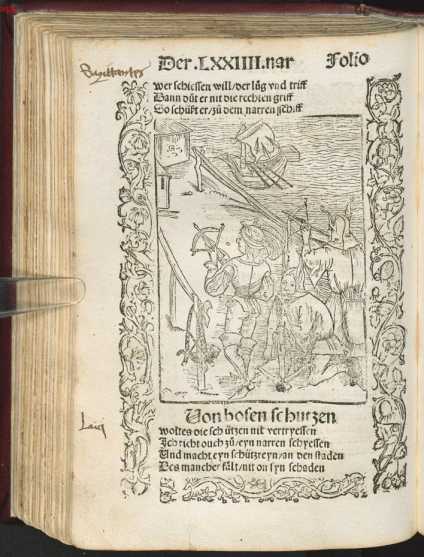 Der .LXXIIII. nar Folio
wer schiessen will/der lůg vnd triff
Dann důt er nit die rechten griff
So schüßt er/zů dem narren schiff
Von bosen schutzen
woltes die schützen nit vertryessen
Jch richt ouch zů/eyn narren schyessen
Und macht eyn schützreyn/an den staden
Des mancher fält/nit on syn schaden